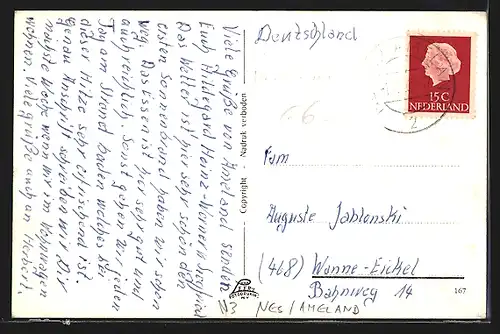 Viele Grüße von Ameland senden
Euch Hildegard Heinz Werner u. Siegfried
Das Wetter ist hier sehr schön den
ersten Sonnenbrand haben wir schon
weg. Das Essen ist hier sehr gut und
auch reichlich. Sonst gehen wir jeden
Tag am Strand baden welches bei
dieser Hitze sehr erfrischend ist.
Genau Anschrift schreiben wir Dir
nächste Woche wenn wir im Wohnwagen
wohnen. Viele grüße auch an Herbert
Copyright - Nachdruk verboden
Deutschland
15 C
NEDERLAND
Fam
Auguste Jablonski
(468) Wanne-Eickel
Bahnweg 14
167
N3 NES/AMELAND